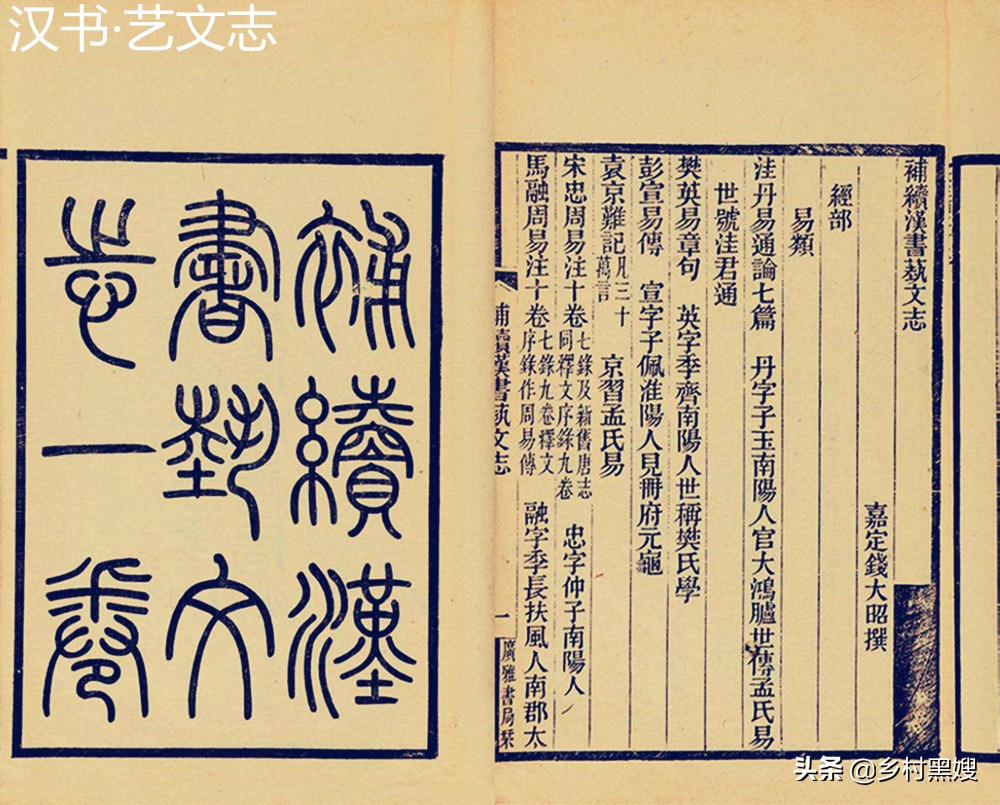 汉书·艺文志
補續漢
書藝文
志一卷
補續漢書藝文志
嘉定錢大昭撰
經部
易類
洼丹易通論七篇 丹字子玉南陽人官大鴻臚世傳孟氏易
世號洼君通
樊英易章句 英字季齊南陽人世稱樊氏學
彭宣易傳 宣字子佩淮陽人見冊府元龜
袁京難記凡三十萬言 京習孟氏易
宋忠周易注十卷七錄及新舊唐志同釋文序錄九卷 忠字仲子南陽人
馬融周易注十卷七錄九卷釋文序錄作周易傳 融字季長扶風人南郡太
補續漢書藝文志
一
廣雅書局栞
头条 @乡村黑嫂